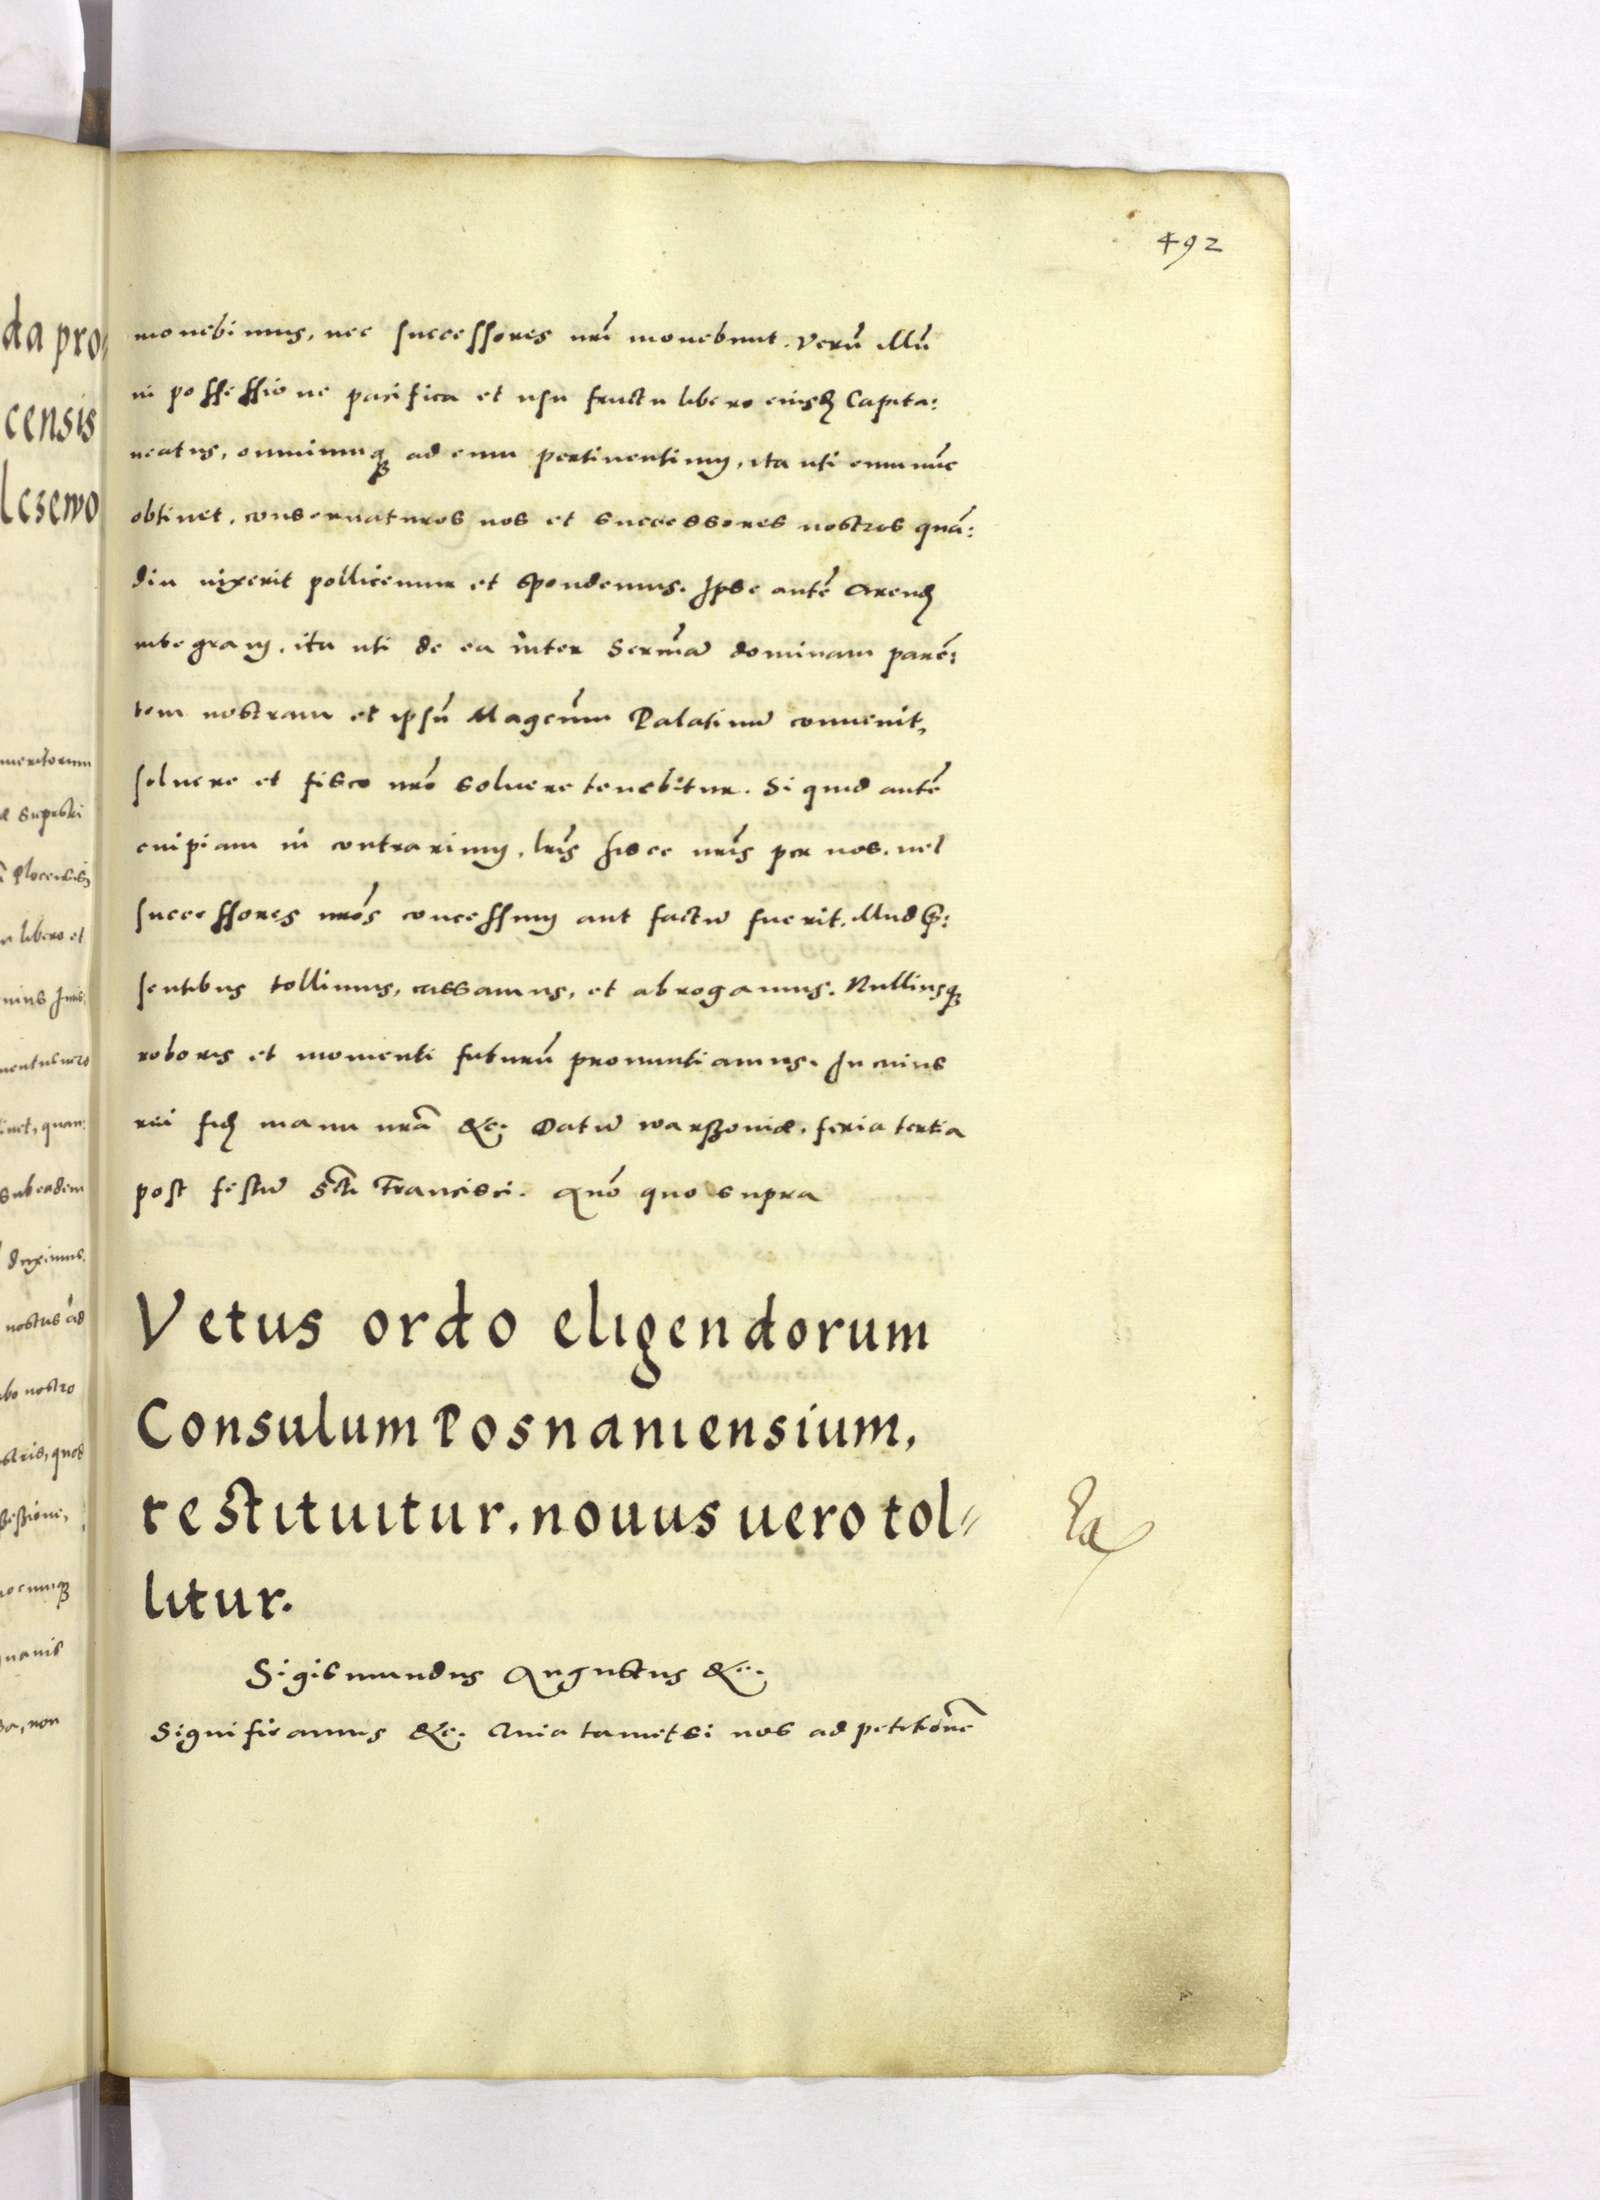 492
monebimus, nec successores nr̃i monebunt. Verũ illũ
in possessione pacifica et usu fructu libero eiusđ Capita:
neatus, omniumq́ ad eum pertinentium, ita uti eum nũc
obtinet, conseruaturos nos et successores nostros quã:
diu uixerit pollicemur et spondemus. Ipse autẽ Arenđ
integram, ita uti de ea inter Serm̃ã dominam parẽ:
tem nostram et ipsũ Magcũm Palatinũ conuenit,
soluere et fisco nr̃o soluere tenebitur. Si quid autẽ
cuipiam in contrarium, lr̃is hisce nr̃is per nos, uel
successores nr̃os concessum aut factũ fuerit, illud p̃:
sentibus tollimus, cassamus, et abrogamus. Nulliusq́
roboris et momenti futurũ pronuntiamus. In cuius
rei fidđ manu nr̃a &c. Datũ warszouiæ. feria tertia
post festũ Sc̃ti Francisci. Anõ quo supra
Vetus ordo eligendorum
Consulum Posnaniensium,
restituitur. nouus uero tol=
litur.
Sigismundus Augustus &c.
Significamus &c. Quia tametsi nos ad petitionẽ
da pro=
censis
lesewo